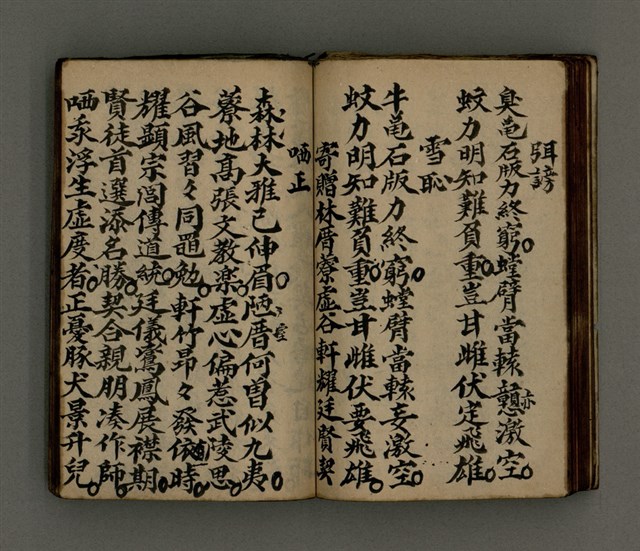 弭謗
臭黽石版力終窮螳臂當轅亦戇激空
蚊力明知難負重豈甘雌伏定飛雄
雪恥
牛黽石版力終窮螳臂當轅妄激空
蚊力明知難負重豈甘雌伏要飛雄
寄贈林厝藔虛谷軒耀廷賢契
哂正
森林大雅已伸眉陋厝何曾似九夷
藔地高張文教樂虛心偏惹武陵思
谷風習々同黽勉軒竹昂々發依時
耀顯宗閭傳道統廷儀鴛鳳展襟期
賢徒首選添名勝契合親朋湊作師
哂余浮生虛度者正憂豚犬景升兒